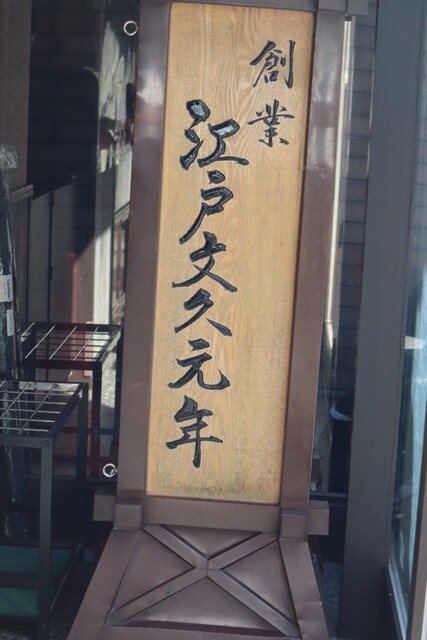 創業
江戸文久元年